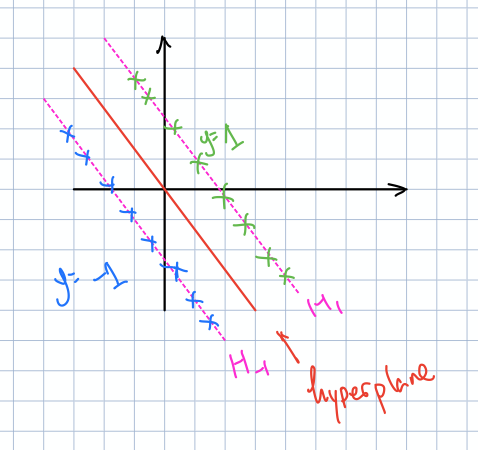 y=1
y=-1
H1
H-1
hyperplane